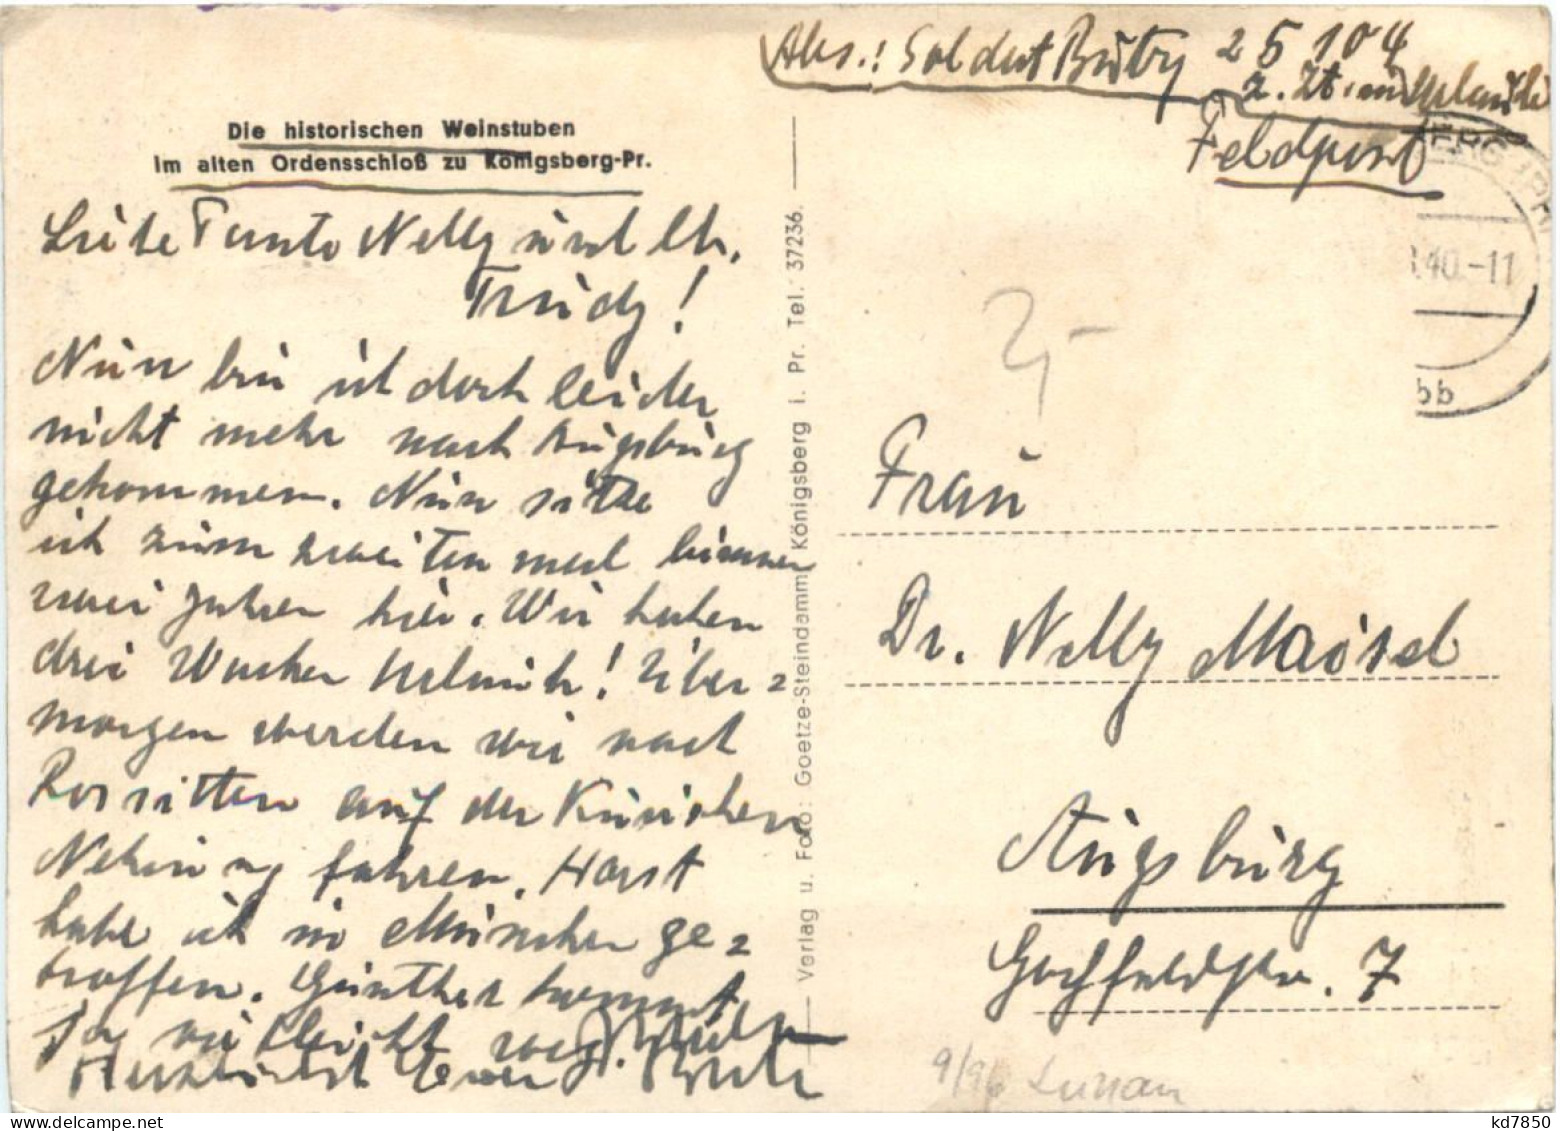 Die historischen Weinstuben
im alten Ordensschloß zu Königsberg-Pr.
Liebe Tante Nelly und lb.
Trudy!
Nun bin ich doch leider
nicht mehr nach Augsburg
gekommen. Nun sitze
ich zum zweiten mal binnen
zwei Jahren hier. Wir haben
drei Wochen Urlaub! Über=
morgen werden wir nach
Rossitten auf der Kurischen
Nehrung fahren. Horst
habe ich in München ge=
troffen. Günther kommt
ja vielleicht
Herzlichst Euer
Verlag u. Foto: Goetze-Steindamm Königsberg i. Pr. Tel. 37236.
Abs.: Soldat 25104
z. Zt. im Urlaub
Feldpost
ERG (PR
40.-11
bb
2,-
Frau
Dr. Nelly Maisel
Augsburg
Hochfeldstr. 7
9/96
kd7850